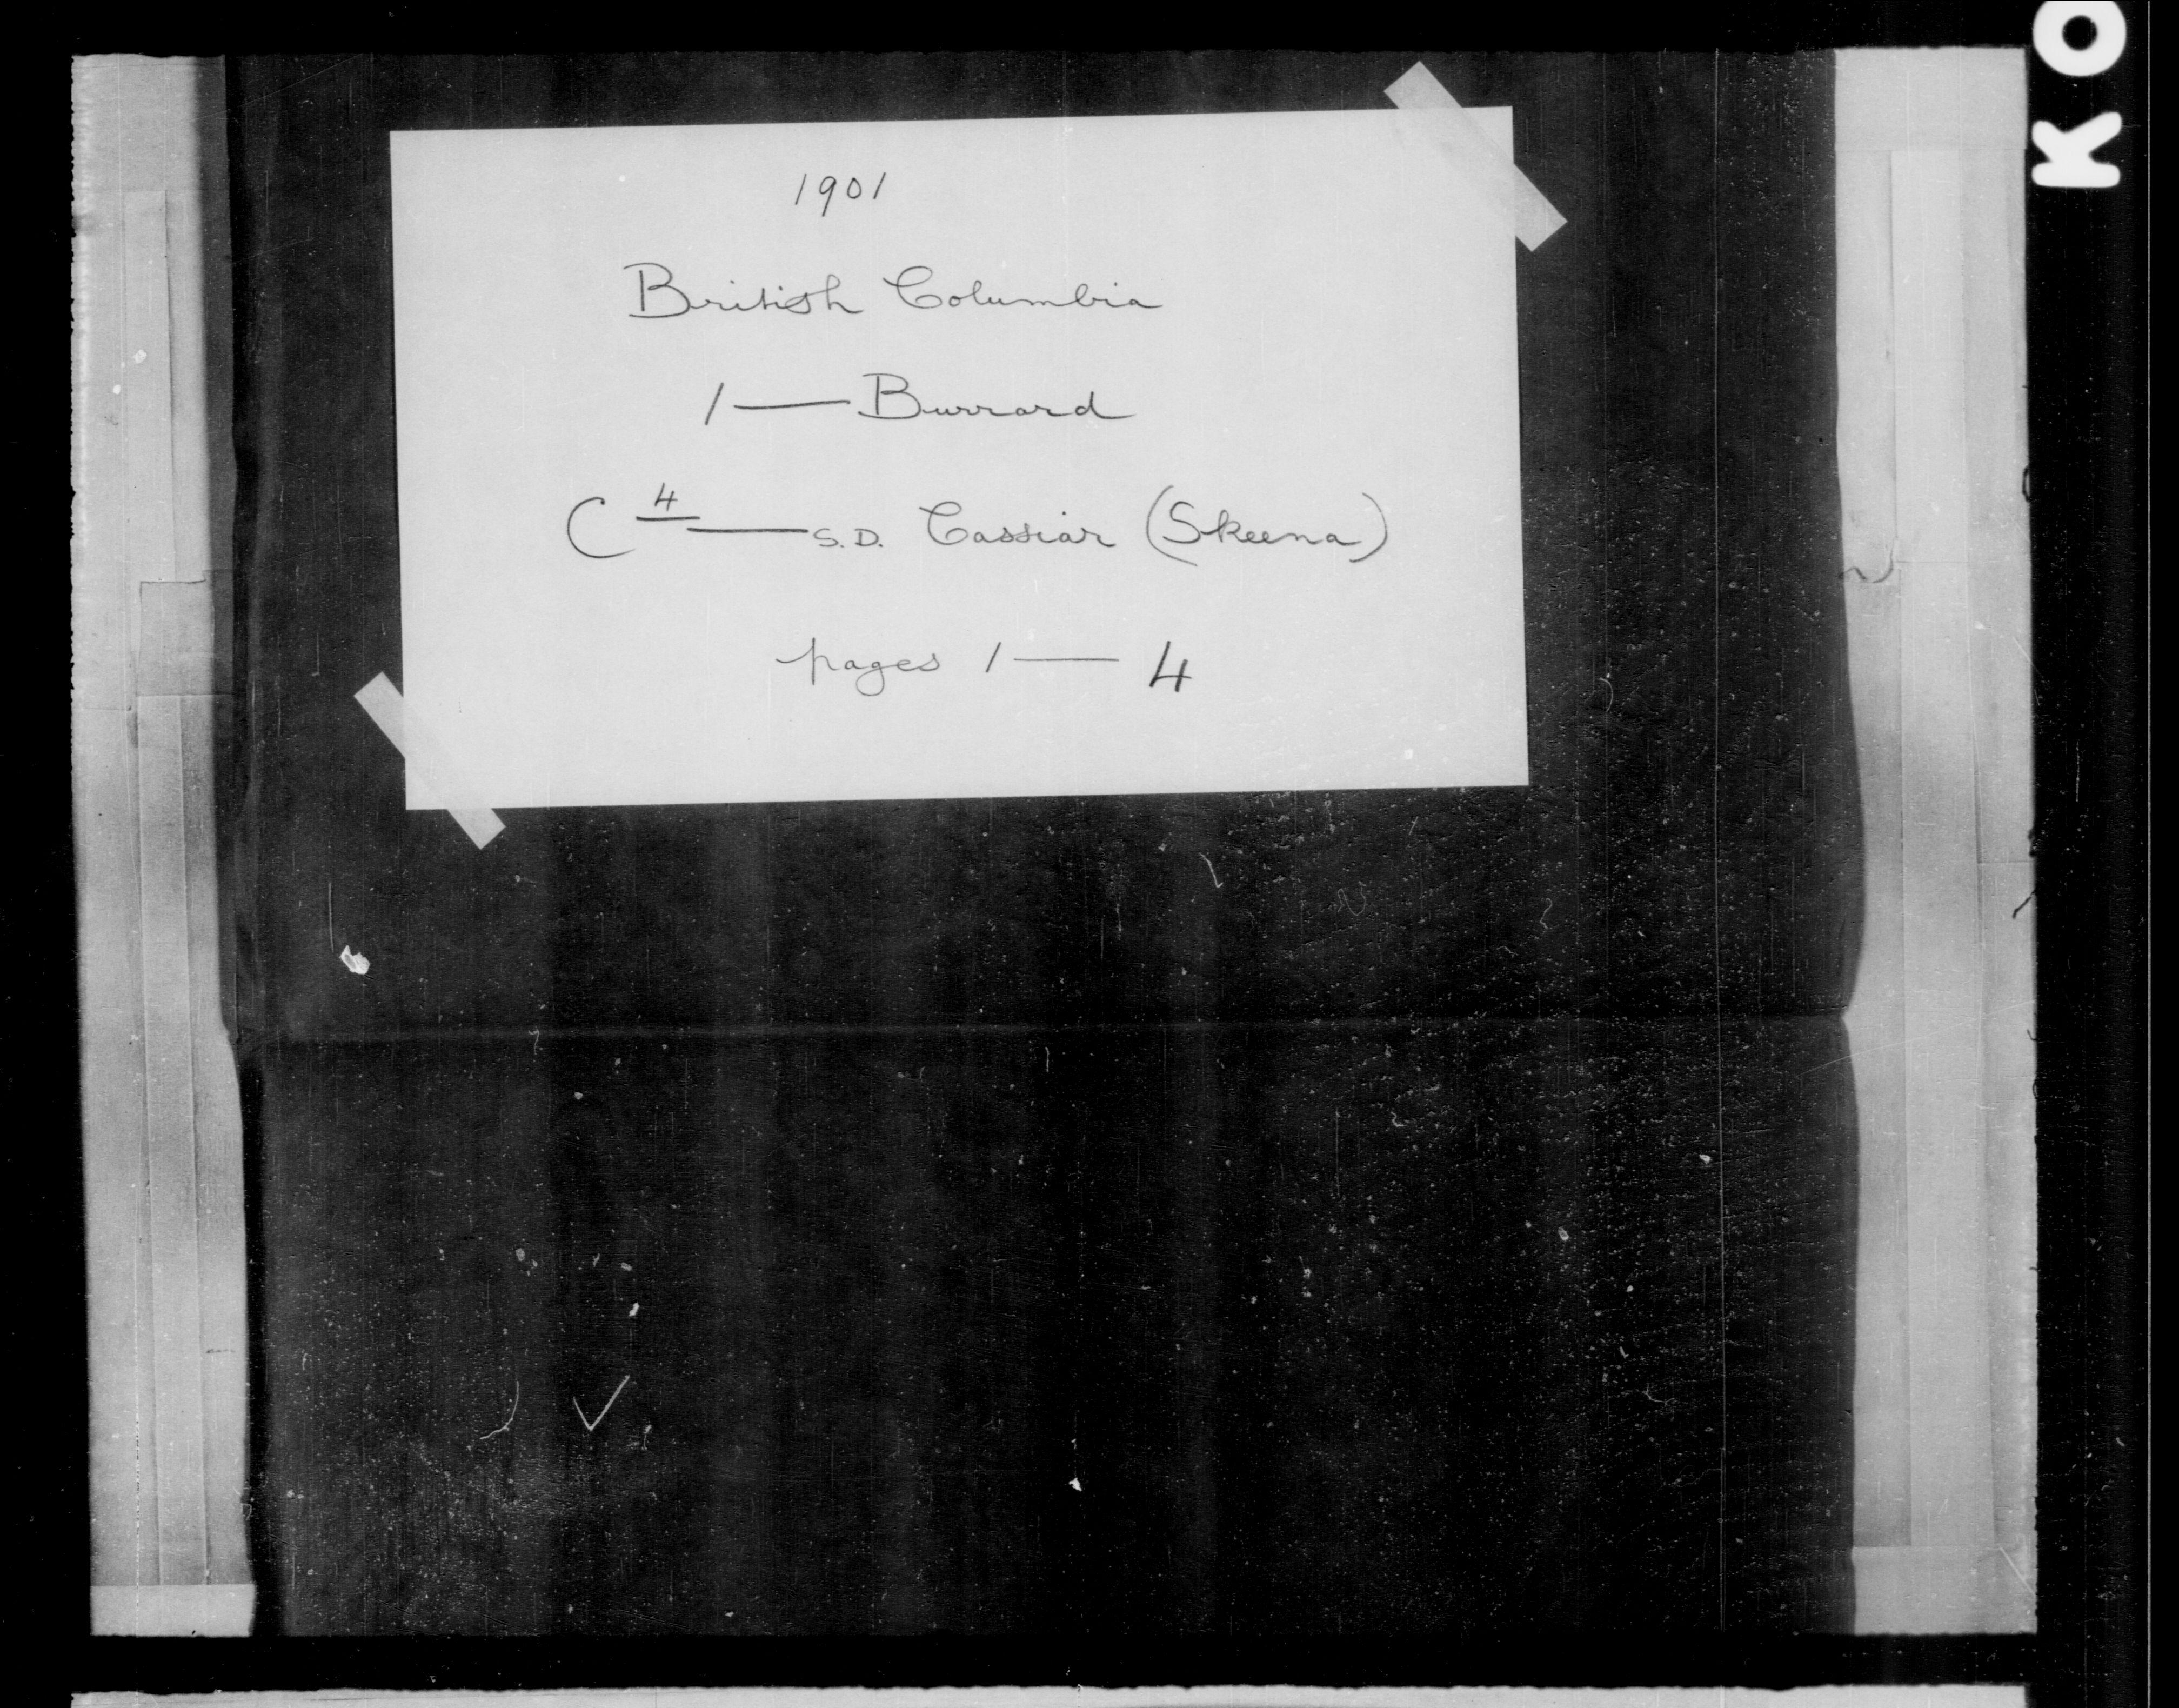 1901
British Columbia
1 — Burrard
C 4 — S.D. Cassiar (Skeena)
pages 1 — 4
KO